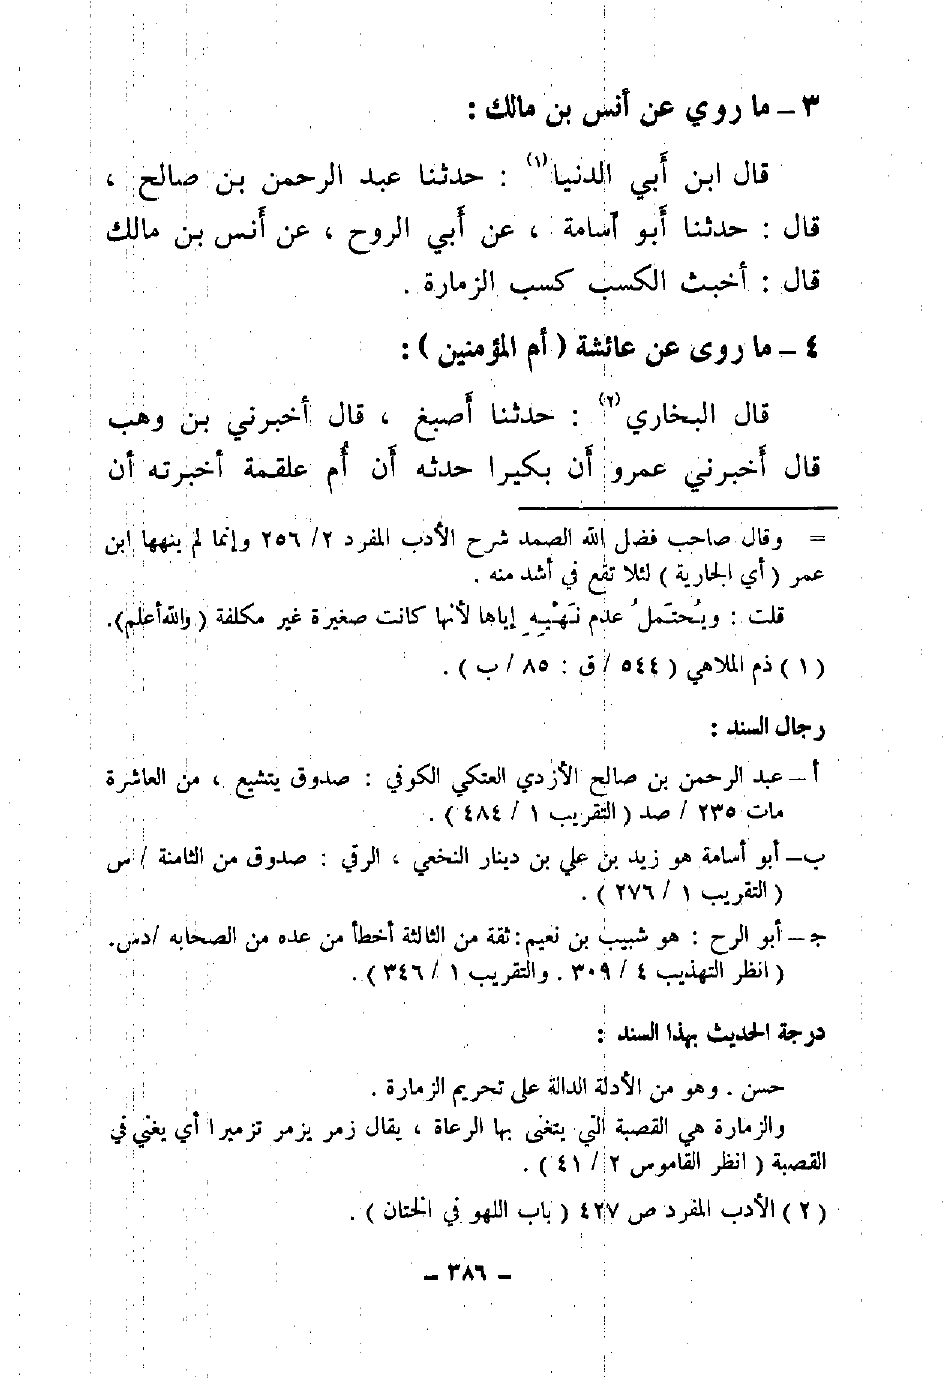 ٣ – ما روي عن أنس بن مالك :
قال ابن أبي الدنيا(١) : حدثنا عبد الرحمن بن صالح ،
قال : حدثنا أبو آسامة ، عن أبي الروح ، عن أنس بن مالك
قال : أخبث الكسب كسب الزمارة .
٤ – ما روى عن عائشة ( أم المؤمنين ) :
قال البخاري(٢) : حدثنا أصبغ ، قال أخبرني بن وهب
قال أخبرني عمرو أن بكيرا حدثه أن أُم علقمة أخبرته أن
= وقال صاحب فضل الله الصمد شرح الأدب المفرد ٢/ ٢٥٦ وإنما لم ينهها ابن
عمر ( أي الجارية ) لئلا تقع في أشد منه .
قلت : ويُحتَملُ عدم نَهْيِهِ إياها لأنها كانت صغيرة غير مكلفة ( والله أعلم ).
( ١ ) ذم الملاهي ( ٥٤٤ / ق : ٨٥ / ب ) .
رجال السند :
أ – عبد الرحمن بن صالح الأزدي العتكي الكوفي : صدوق يتشيع ، من العاشرة
مات ٢٣٥ / صد ( التقريب ١ / ٤٨٤ ) .
ب– أبو أسامة هو زيد بن علي بن دينار النخعي ، الرقي : صدوق من الثامنة / س
( التقريب ١ / ٢٧٦ ) .
جـ – أبو الرح : هو شبيب بن نعيم : ثقة من الثالثة أخطأ من عده من الصحابه /دس.
( انظر التهذيب ٤ / ٣٠٩ . والتقريب ١ / ٣٤٦ ) .
درجة الحديث بهذا السند :
حسن . وهو من الأدلة الدالة على تحريم الزمارة .
والزمارة هي القصبة التي يتغنى بها الرعاة ، يقال زمر يزمر تزميرا أي يغني في
القصبة ( انظر القاموس ٢ / ٤١ ) .
( ٢ ) الأدب المفرد ص ٤٢٧ ( باب اللهو في الختان ) .
– ٣٨٦ –